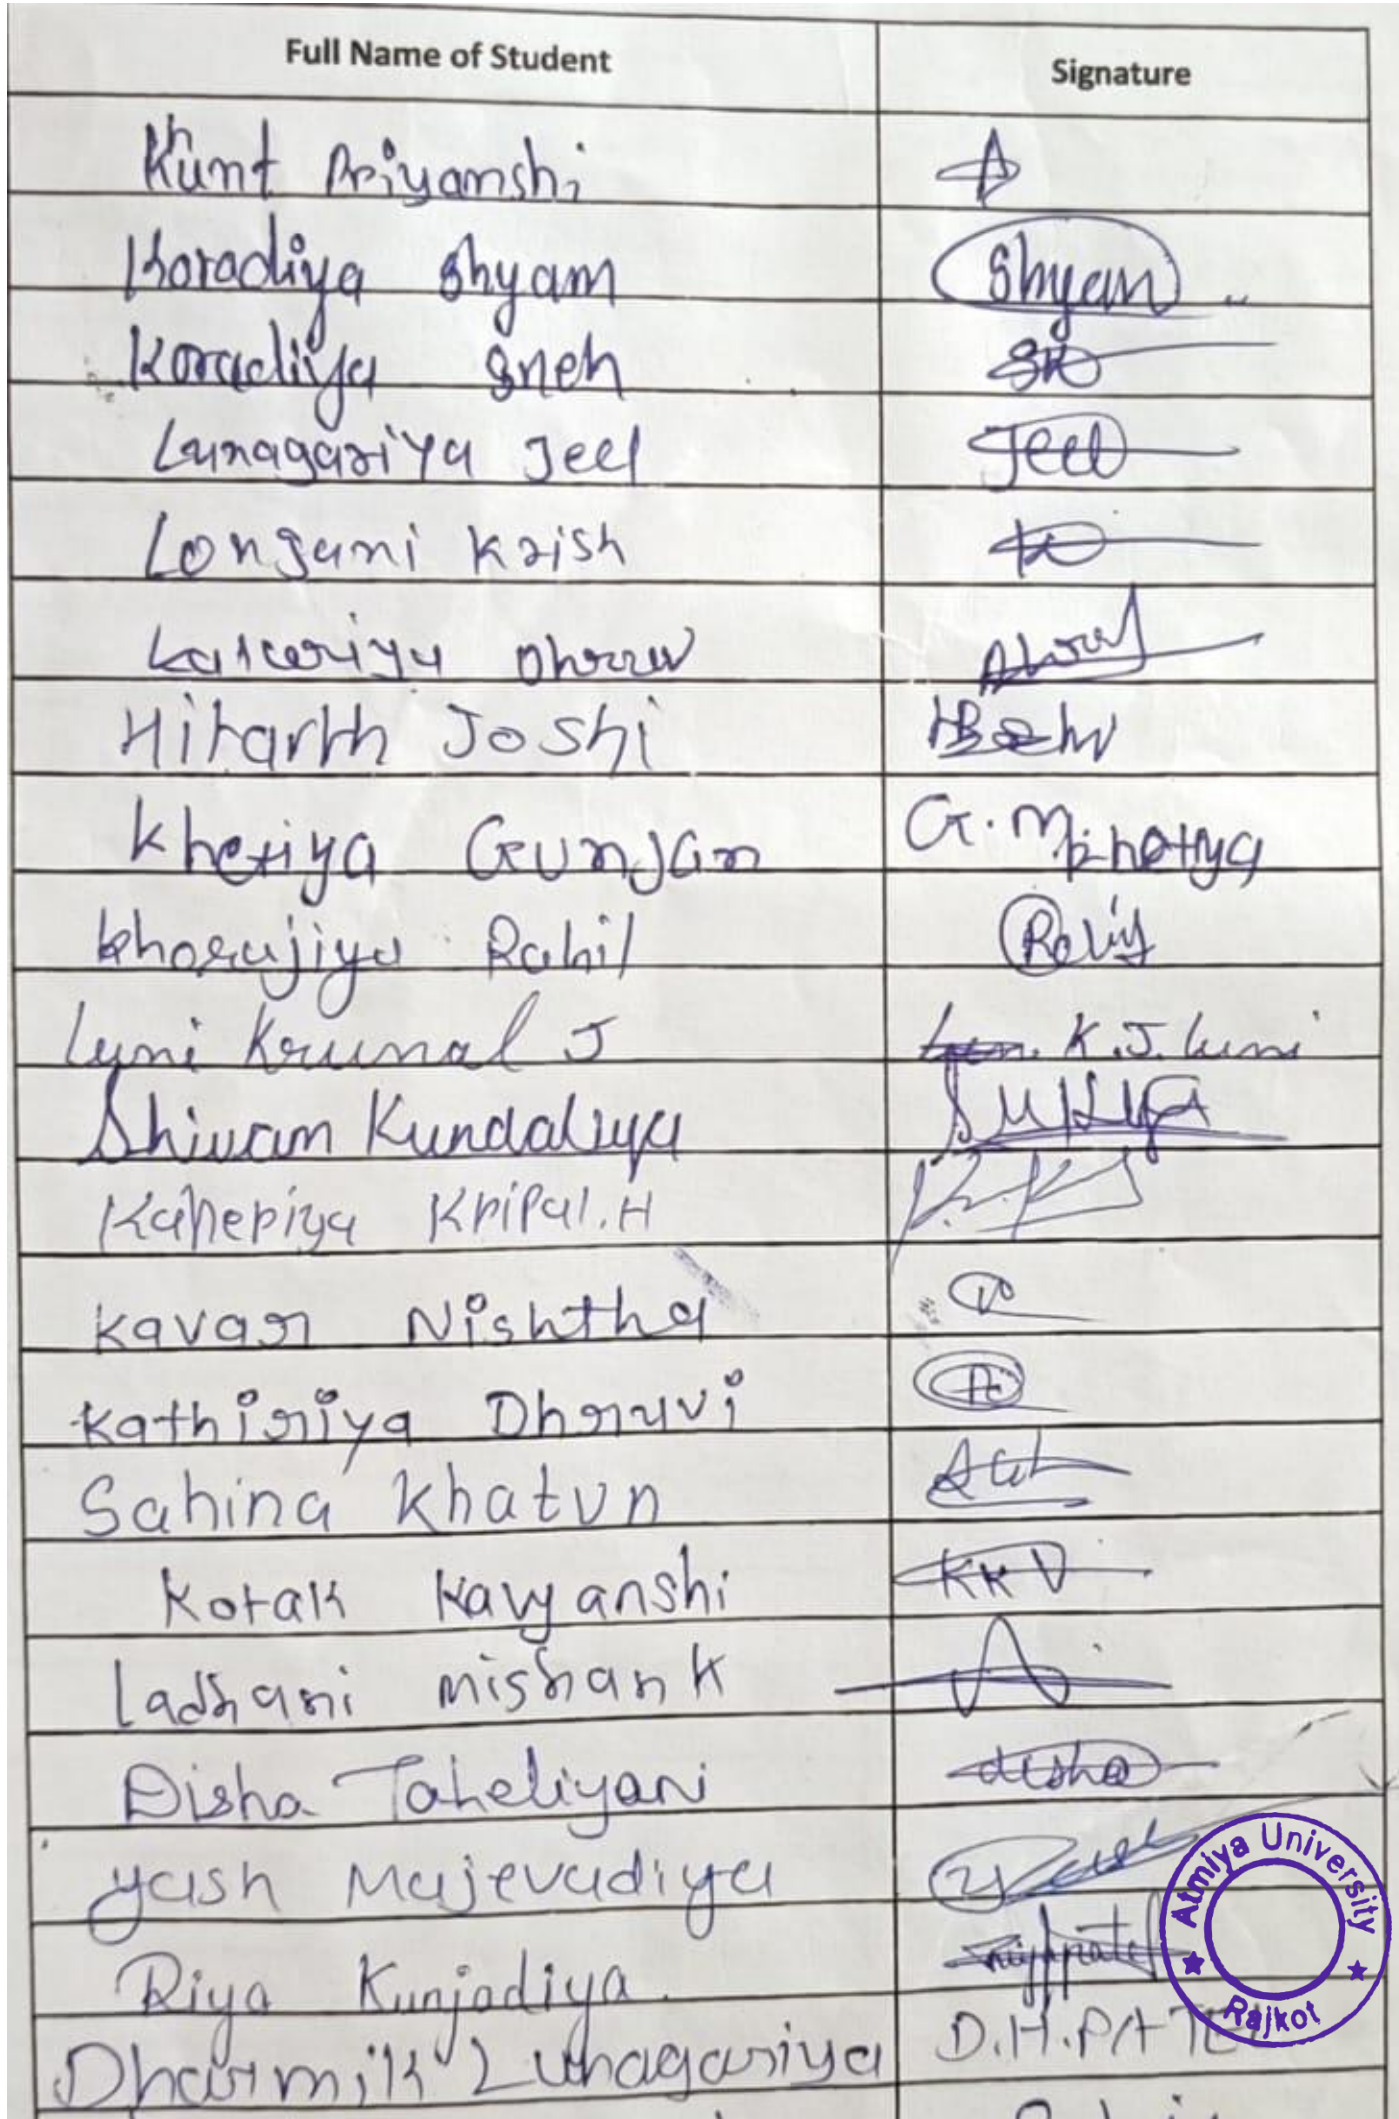 Full Name of Student Signature
Khunt Priyanshi
Koradiya Shyam Shyam
Koradiya Sneh
Lunagariya Jeel Jeel
Longani Krish
Dhruv
Hitarth Joshi
Khetiya Gunjan G.M.
Rahil
Luni Krunal J K.J. Luni
Shivam Kundaliya
Kaneriya Kripal.H
Kavar Nishtha
Kathiriya Dhruvi
Sahina Khatun
Kotak Kavyanshi KKV
Ladhani
Disha Taheliyani disha
Yash Majevadiya
Riya Kunjadiya
Dharmik Lunagariya D.H.PATEL
Atmiya University
Rajkot